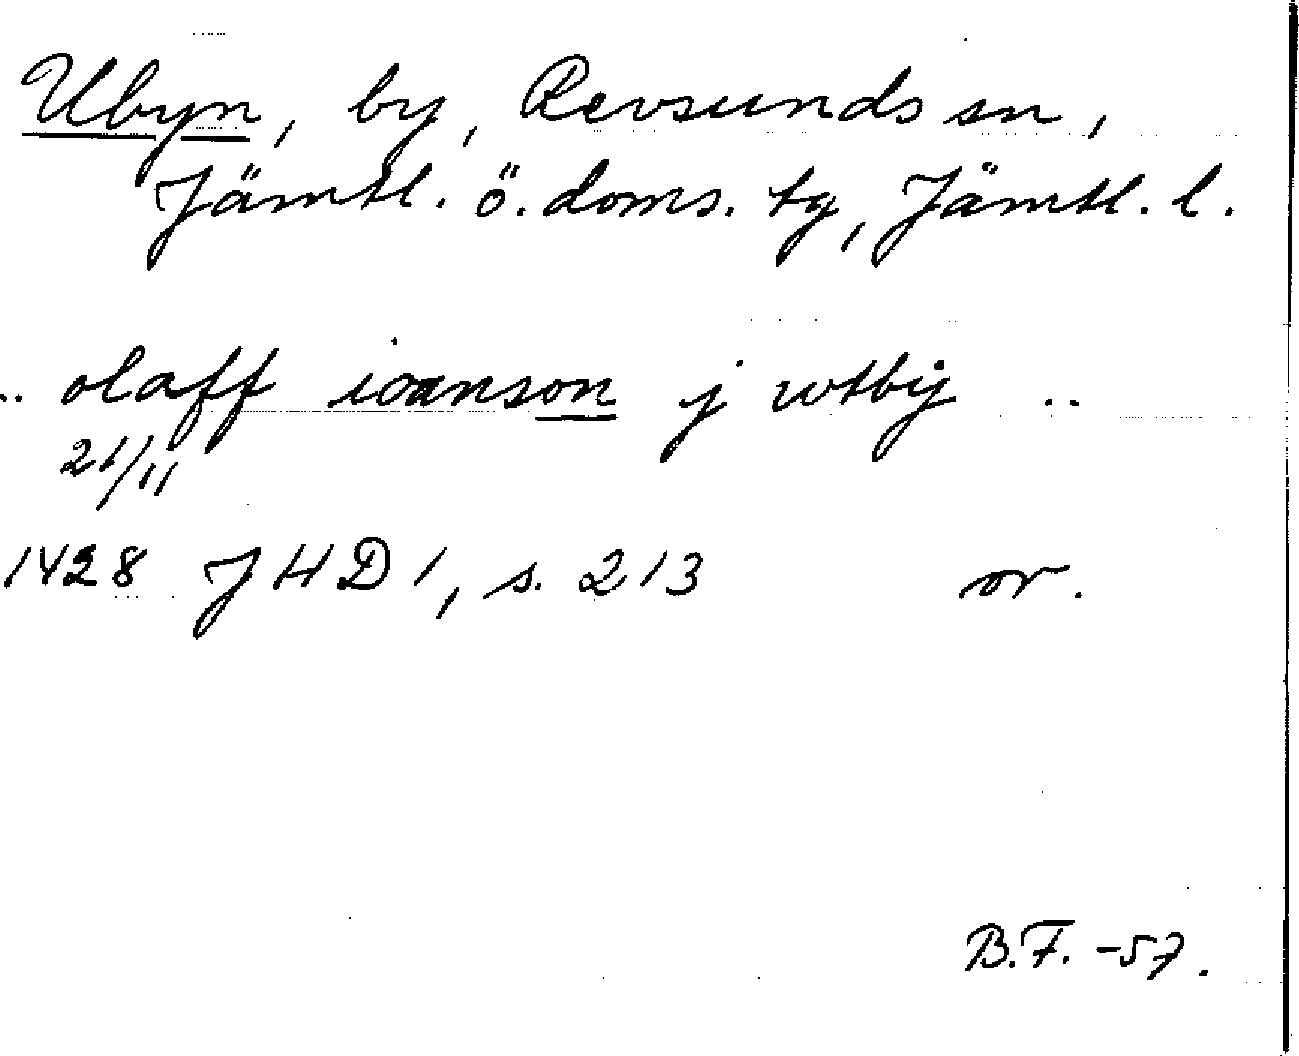 Ubyn, by, Revsunds sn,
Jämtl. ö. doms. tg, Jämtl. l.
.. olaff ioanson j wtbij ..
21/11
1428 JHD 1, s. 213 or.
B.F. -57.